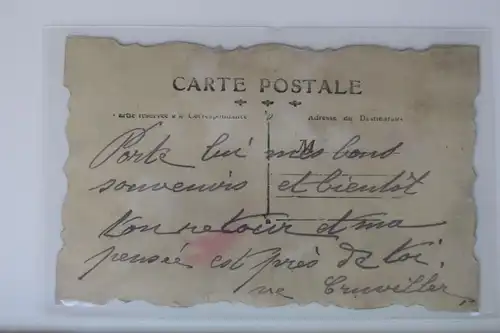 CARTE POSTALE
Partie réservée à la Correspondance
Adresse du Destinataire
M
Porte lui mes bons
souvenirs et bientôt
ton retour et ma
pensée est près de toi.